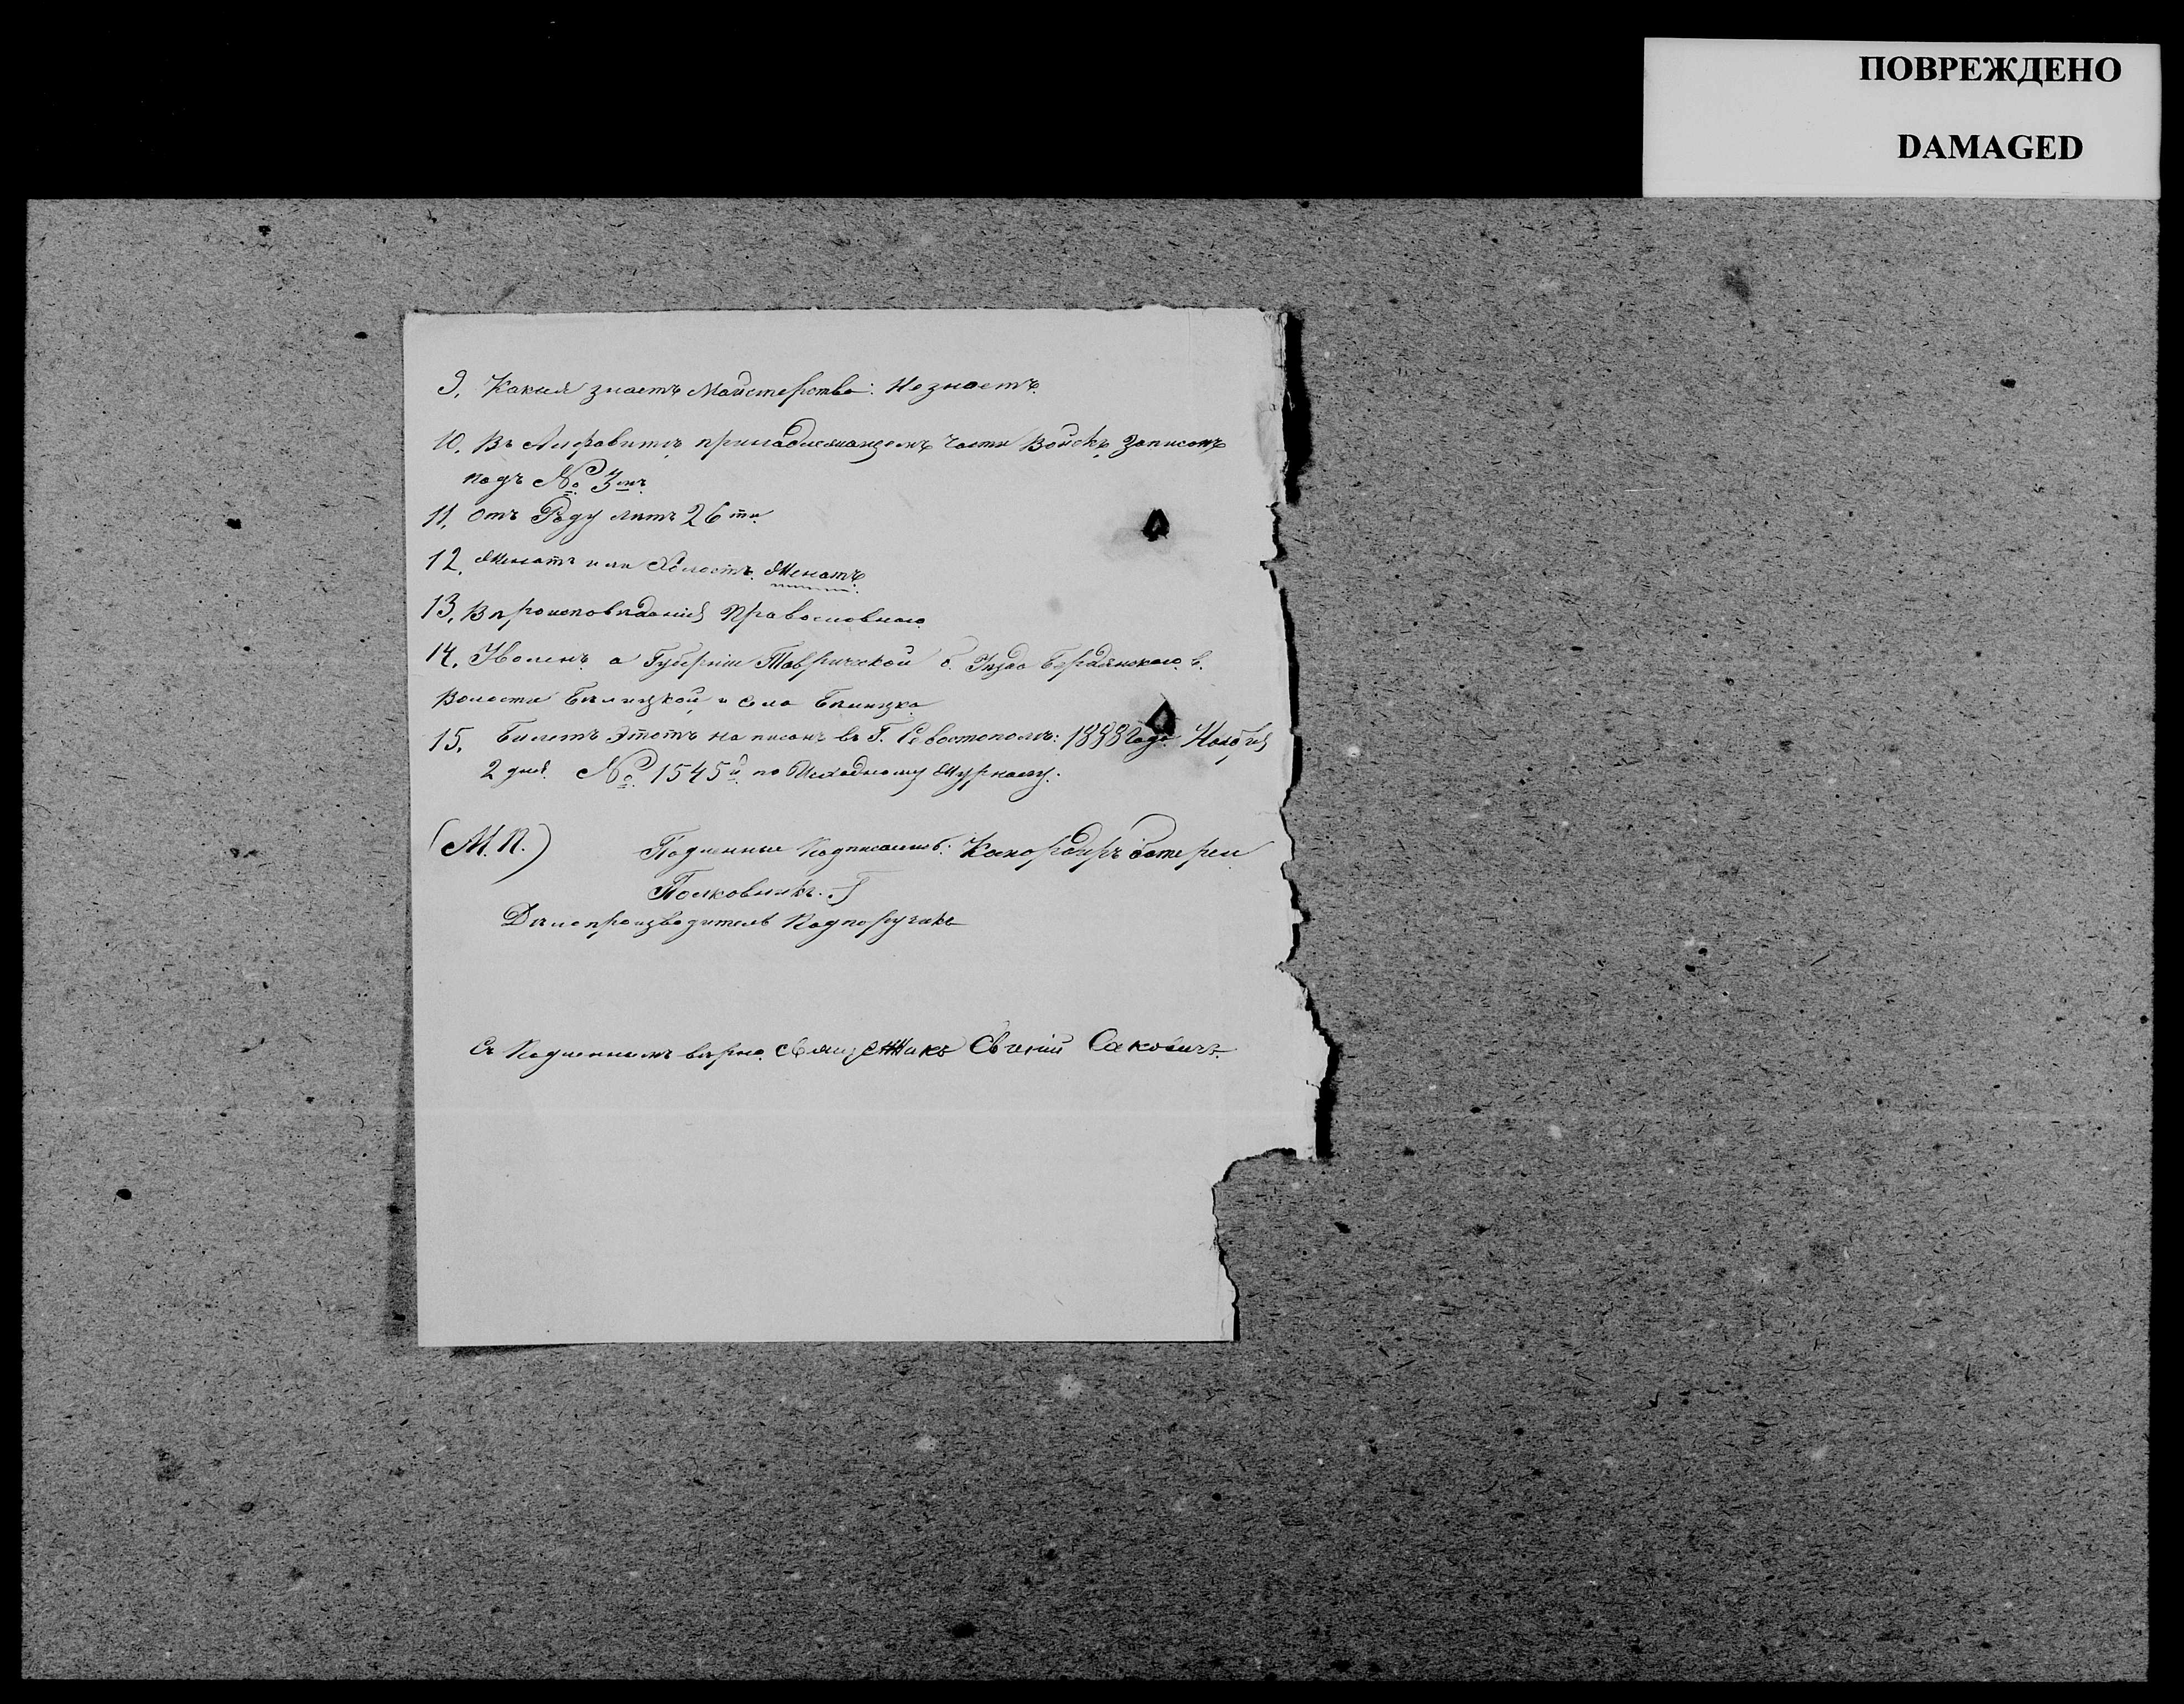 ПОВРЕЖДЕНО
DAMAGED
9. Какия знаетъ Мастерства: Не знаетъ.
10. Въ Алфавитѣ, принадлежащемъ части Войскъ, записанъ
подъ № 3мъ.
11. Отъ Роду лѣтъ 26ти.
12. Женатъ или Холостъ. Женатъ.
13. Вѣроисповѣданія Православнаго.
14. Уволенъ а Губерніи Таврической б. Уѣзда Бердянскаго в.
Волости и Села
15. Билетъ этотъ написанъ въ Г. Севастополѣ: 1888 Года Ноября
2 дня. № 1545й по Исходному Журналу.
(М. П.) Подлинные Подписали: батареи
Полковникъ.
Дѣлопроизводитель Подпоручикъ
Съ Подлиннымъ вѣрно. Священникъ Саковичъ.